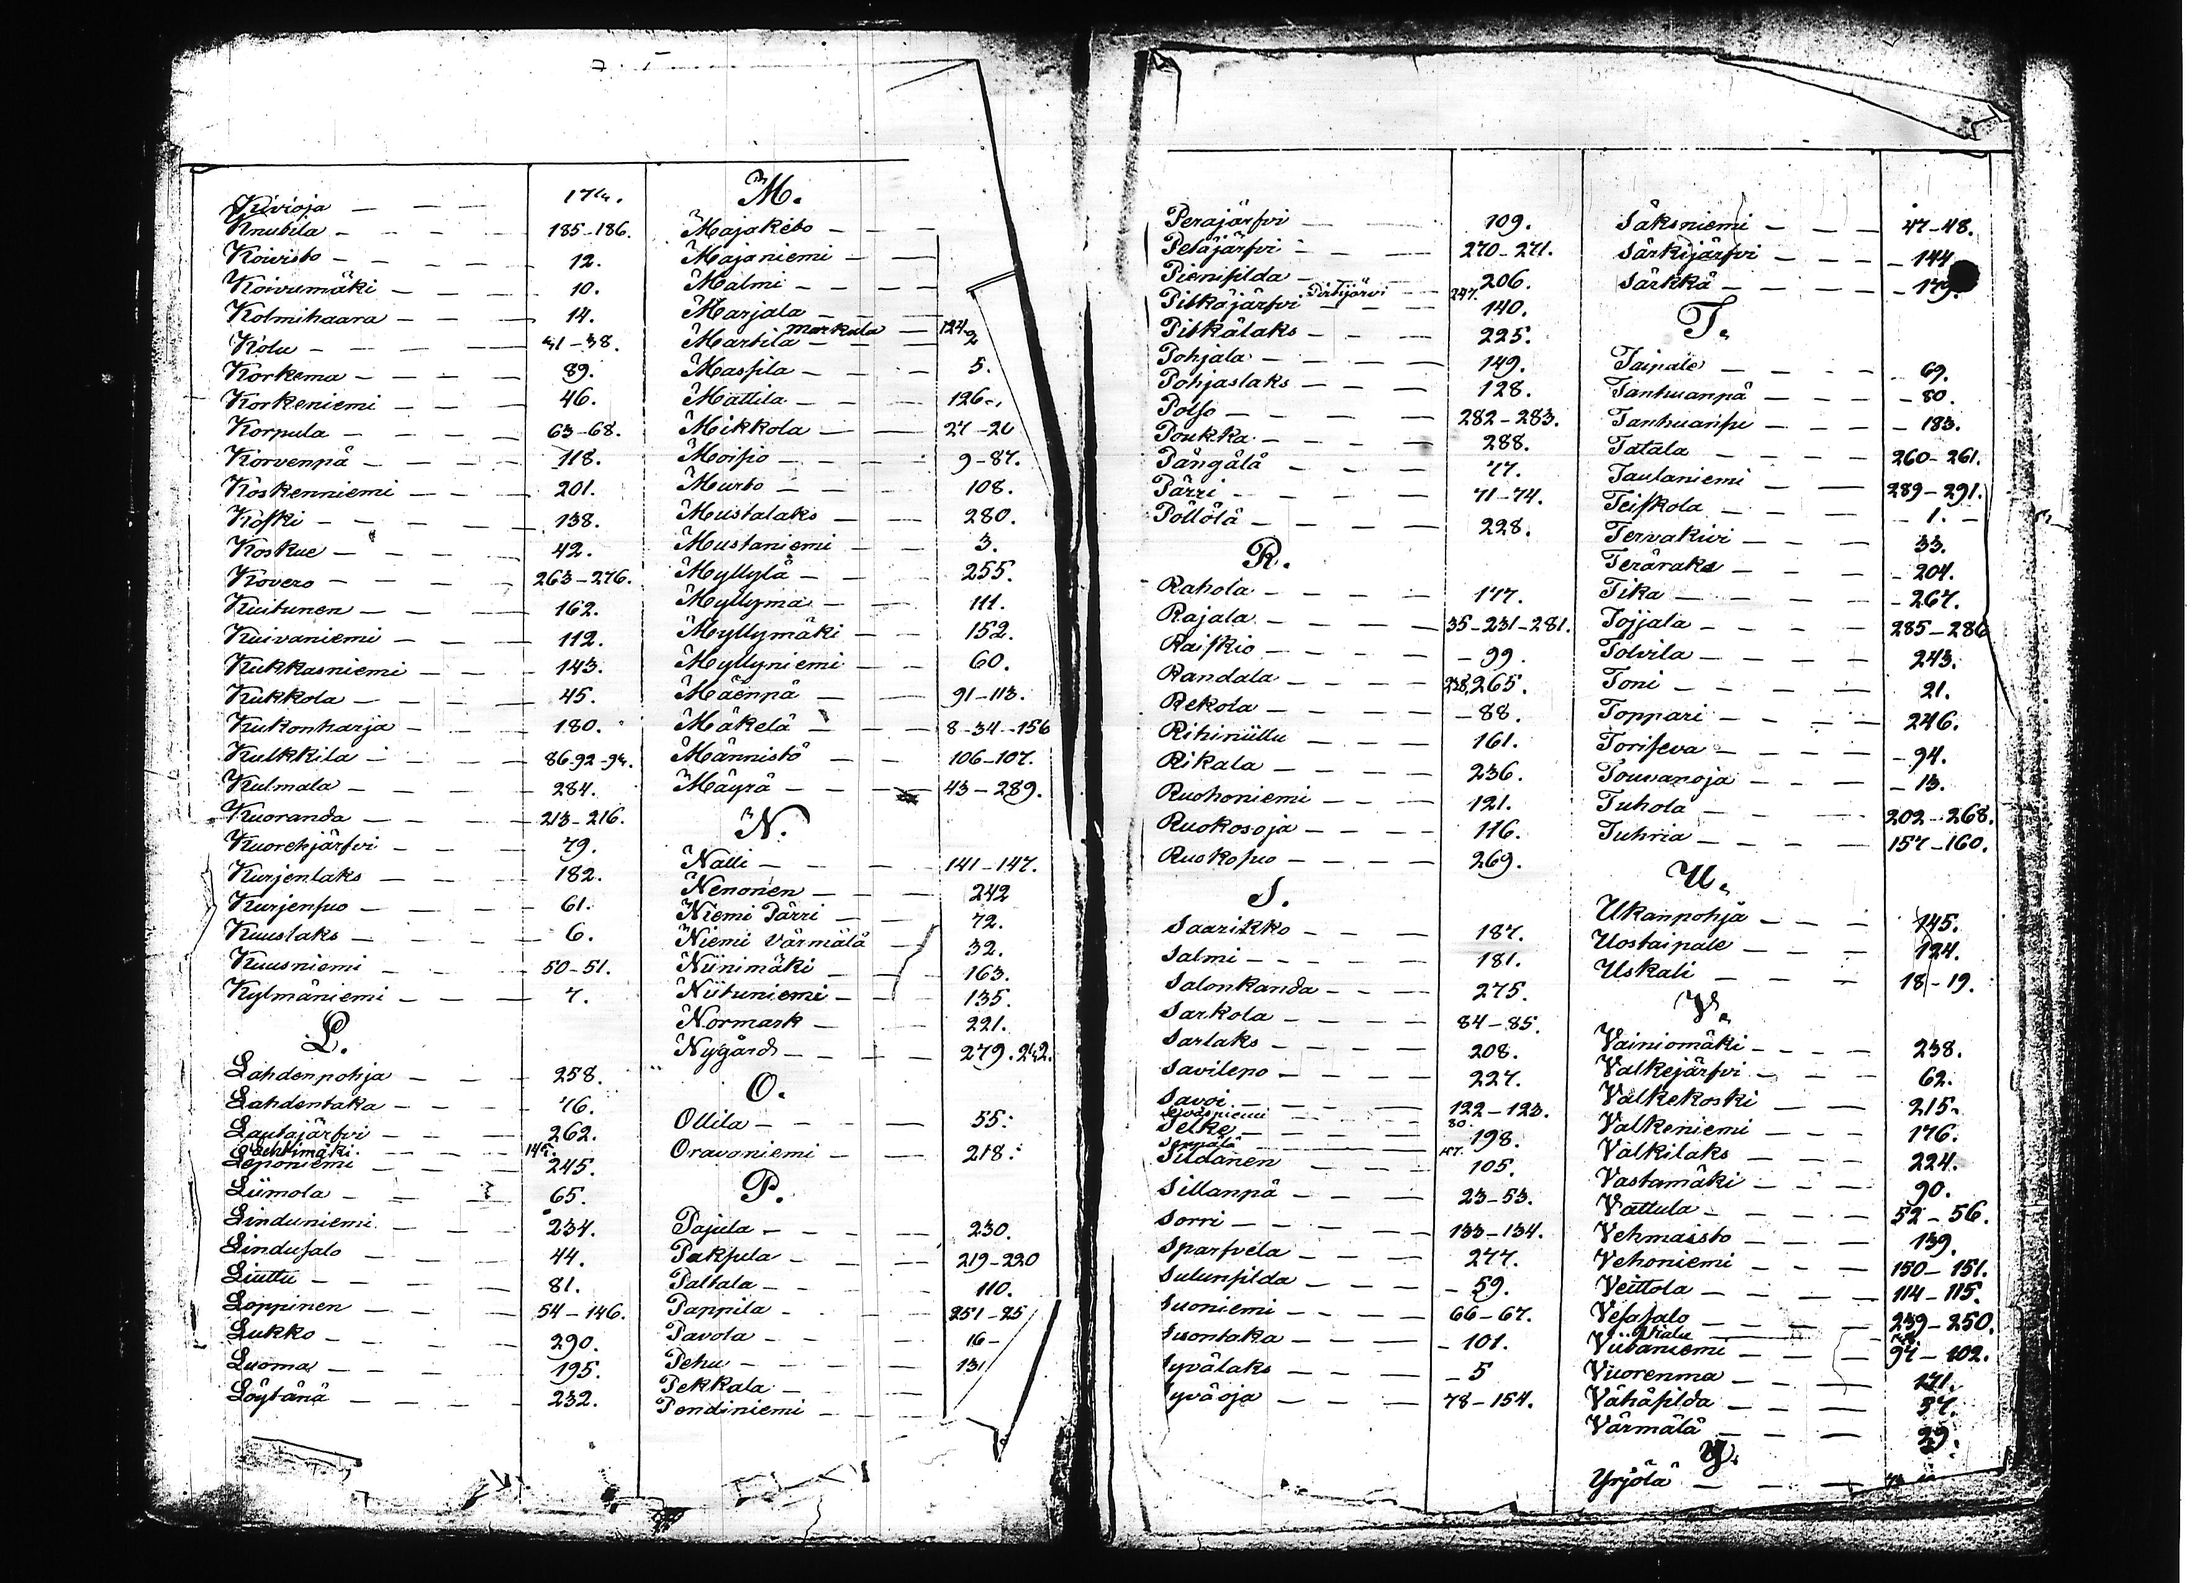 Kivioja — — — 174.
Knutila — — — 185-186.
Koivisto — — — 12.
Koivumäki — — — 10.
Kolmihaara — — — 14.
Kolu — — — 31-38.
Korkema — — — 89.
Korkeniemi — — — 46.
Korpula — — — 63-68.
Korvenpä — — — 118.
Koskenniemi — — — 201.
Koski — — — 138.
Koskue — — — 42.
Kovero — — — 263-276.
Kuitunen — — — 162.
Kuivaniemi — — — 112.
Kukkasniemi — — — 143.
Kukkola — — — 45.
Kukonharja — — — 180.
Kulkkila — — — 86-92-94.
Kulmala — — — 284.
Kuoranda — — — 213-216.
Kuorehjärfvi — — — 79.
Kurjenlaks — — — 182.
Kurjensuo — — — 61.
Kuuslaks — — — 6.
Kuusniemi — — — 50-51.
Kylmäniemi — — — 7.
L.
Lahdenpohja — — — 258.
Lahdentaka — — — 76.
Lautajärfvi — — — 262.
Lehtimäki — — — 145.
Leponiemi — — — 245.
Liimola — — — 65.
Linduniemi — — — 234.
Lindusalo — — — 44.
Liuttu — — — 81.
Loppinen — — — 54-146.
Lukko — — — 290.
Luoma — — — 195.
Löytänä — — — 232.
M.
Majakéto — — —
Majaniemi — — —
Malmi — — —
Marjala — — —
Markala — 124.
Martila — — — 2
Massila — — — 5.
Mattila — — — 126-
Mikkola — — — 27-20
Moisio — — — 9-87.
Murto — — — 108.
Mustalaks — — — 280.
Mustaniemi — — — 3.
Myllylä — — — 255.
Myllymä — — — 111.
Myllymäki — — — 152.
Myllyniemi — — — 60.
Mäenpä — — — 91-113.
Mäkelä — — — 8-34-156
Männistö — — — 106-107.
Mäyrä — — — 43-289.
N.
Nalli — — — 141-147.
Nenonen — — — 242
Niemi Pärri — — 72.
Niemi Värmälä — 32.
Niinimäki — — — 163.
Niituniemi — — — 135.
Normark — — — 221.
Nygård — — — 279.242.
O.
Ollila — — — 55.
Oravoniemi — — — 218.
P.
Pajula — — — 230.
Paksula — — — 219-220
Paltala — — — 110.
Pappila — — — 251-25
Pavola — — — 16-
Pehu — — — 131
Pekkala — — —
Pendiniemi — — —
Perajärfvi — — — 109.
Petäjärfvi — — — 270-271.
Pienisilda — — — 206.
Pirttijärvi — — 247.
Pitkäjärfvi — — — 140.
Pitkälaks — — — 225.
Pohjala — — — 149.
Pohjaslaks — — — 128.
Polso — — — 282-283.
Poukka — — — 288.
Pängälä — — — 77.
Pärri — — — 71-74.
Pöllölä — — — 228.
R.
Rahola — — — 177.
Rajala — — — 35-231-281.
Raiskio — — — 99.
Randala — — — 238,265.
Rekola — — — 88.
Rihiniittu — — — 161.
Rikala — — — 236.
Ruohoniemi — — — 121.
Ruokosoja — — — 116.
Ruokosuo — — — 269.
S.
Saarikko — — — 187.
Salmi — — — 181.
Salonkanda — — — 275.
Sarkola — — — 84-85.
Sarlaks — — — 208.
Savilepo — — — 227.
Savoi — — — 122-123.
80.
Selke — — — 198.
Seppälä — — — 157.
Siidanen — — — 105.
Sillanpä — — — 23-53.
Sorri — — — 133-134.
Sparfvela — — — 277.
Sulunsilda — — — 59.
Suoniemi — — — 66-67.
Suontaka — — — 101.
Syvälaks — — — 5
Syväoja — — — 78-154.
Säksniemi — — — 47-48.
Särkijärfvi — — — 144
Särkkä — — — 179.
T.
Taipale — — — 69.
Tanhuanpä — — — 80.
Tanhuansu — — — 183.
Tatala — — — 260-261.
Taulaniemi — — — 289-291.
Teiskola — — — 1.
Tervakivi — — — 33.
Teräraks — — — 204.
Tika — — — 267.
Tojjala — — — 285-286
Tolvila — — — 243.
Toni — — — 21.
Toppari — — — 246.
Toriseva — — — 94.
Touvanoja — — — 13.
Tuhola — — — 202-268.
Tuhria — — — 157-160.
U.
Ukanpohja — — — 145.
Uostaipale — — — 124.
Uskali — — — 18-19.
V.
Vainiomäki — — — 238.
Valkejärfvi — — — 62.
Valkekoski — — — 215.
Valkeniemi — — — 176.
Valkilaks — — — 224.
Vastamäki — — — 90.
Vattula — — — 52-56.
Vehmaisto — — — 139.
Vehoniemi — — — 150-151.
Veittola — — — 114-115.
Vesasalo — — — 239-250.
Viitaniemi — — — 97-102.
Vuorenma — — — 171.
Vähäsilda — — — 57.
Värmälä — — — 29.
Y.
Yrjölä — — —